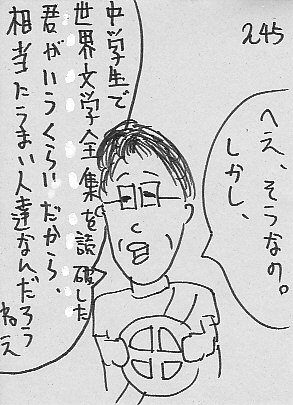 245
へえ、そうなの。
しかし、
中学生で
世界文学全集を読破した
君がいうくらいだから、
相当たうまい人達なんだろう
ねえ